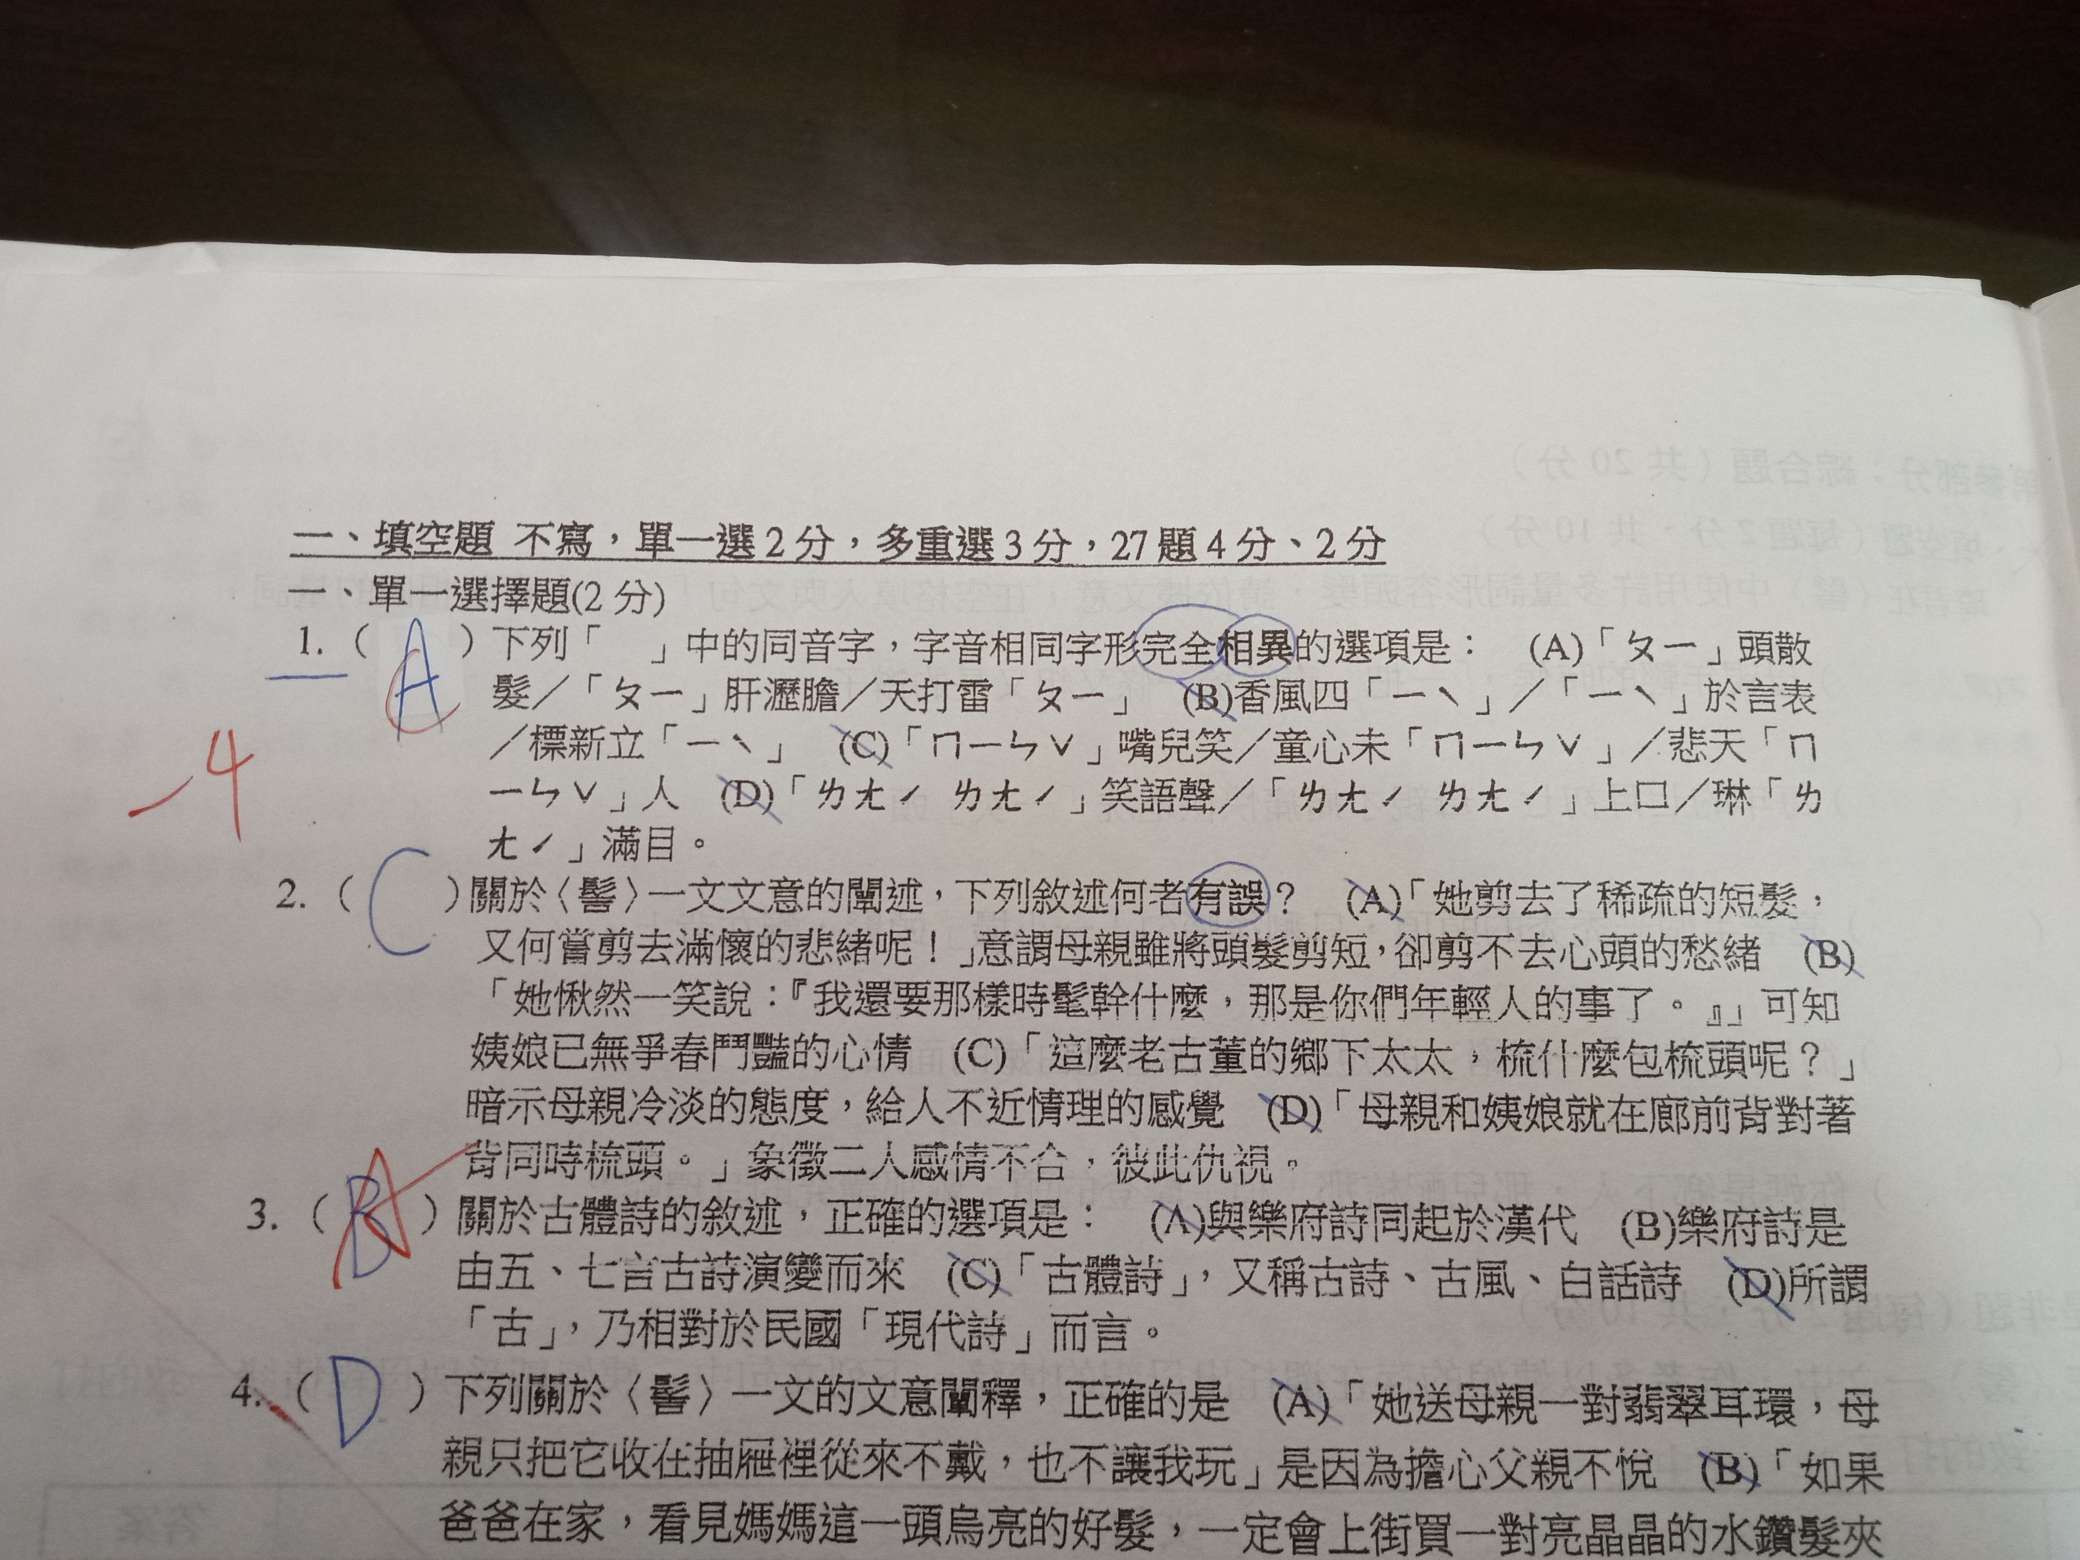 一、填空題 不寫，單一選2分，多重選3分，27題4分、2分
一、單一選擇題(2分)
1.（ A ）下列「　」中的同音字，字音相同字形完全相異的選項是：　(A)「ㄆㄧ」頭散
髮／「ㄆㄧ」肝瀝膽／天打雷「ㄆㄧ」　(B)香風四「ㄧˋ」／「ㄧˋ」於言表
-4
／標新立「ㄧˋ」　(C)「ㄇㄧㄣˇ」嘴兒笑／童心未「ㄇㄧㄣˇ」／悲天「ㄇ
ㄧㄣˇ」人　(D)「ㄌㄤˊ ㄌㄤˊ」笑語聲／「ㄌㄤˊ ㄌㄤˊ」上口／琳「ㄌ
ㄤˊ」滿目。
2.（ C ）關於〈髻〉一文文意的闡述，下列敘述何者有誤？　(A)「她剪去了稀疏的短髮，
又何嘗剪去滿懷的悲緒呢！」意謂母親雖將頭髮剪短，卻剪不去心頭的愁緒　(B)
「她愀然一笑說：『我還要那樣時髦幹什麼，那是你們年輕人的事了。』」可知
姨娘已無爭春鬥豔的心情　(C)「這麼老古董的鄉下太太，梳什麼包梳頭呢？」
暗示母親冷淡的態度，給人不近情理的感覺　(D)「母親和姨娘就在廊前背對著
背同時梳頭。」象徵二人感情不合，彼此仇視。
3.（ B A ）關於古體詩的敘述，正確的選項是：　(A)與樂府詩同起於漢代　(B)樂府詩是
由五、七言古詩演變而來　(C)「古體詩」，又稱古詩、古風、白話詩　(D)所謂
「古」，乃相對於民國「現代詩」而言。
4.（ D ）下列關於〈髻〉一文的文意闡釋，正確的是　(A)「她送母親一對翡翠耳環，母
親只把它收在抽屜裡從來不戴，也不讓我玩」是因為擔心父親不悅　(B)「如果
爸爸在家，看見媽媽這一頭烏亮的好髮，一定會上街買一對亮晶晶的水鑽髮夾